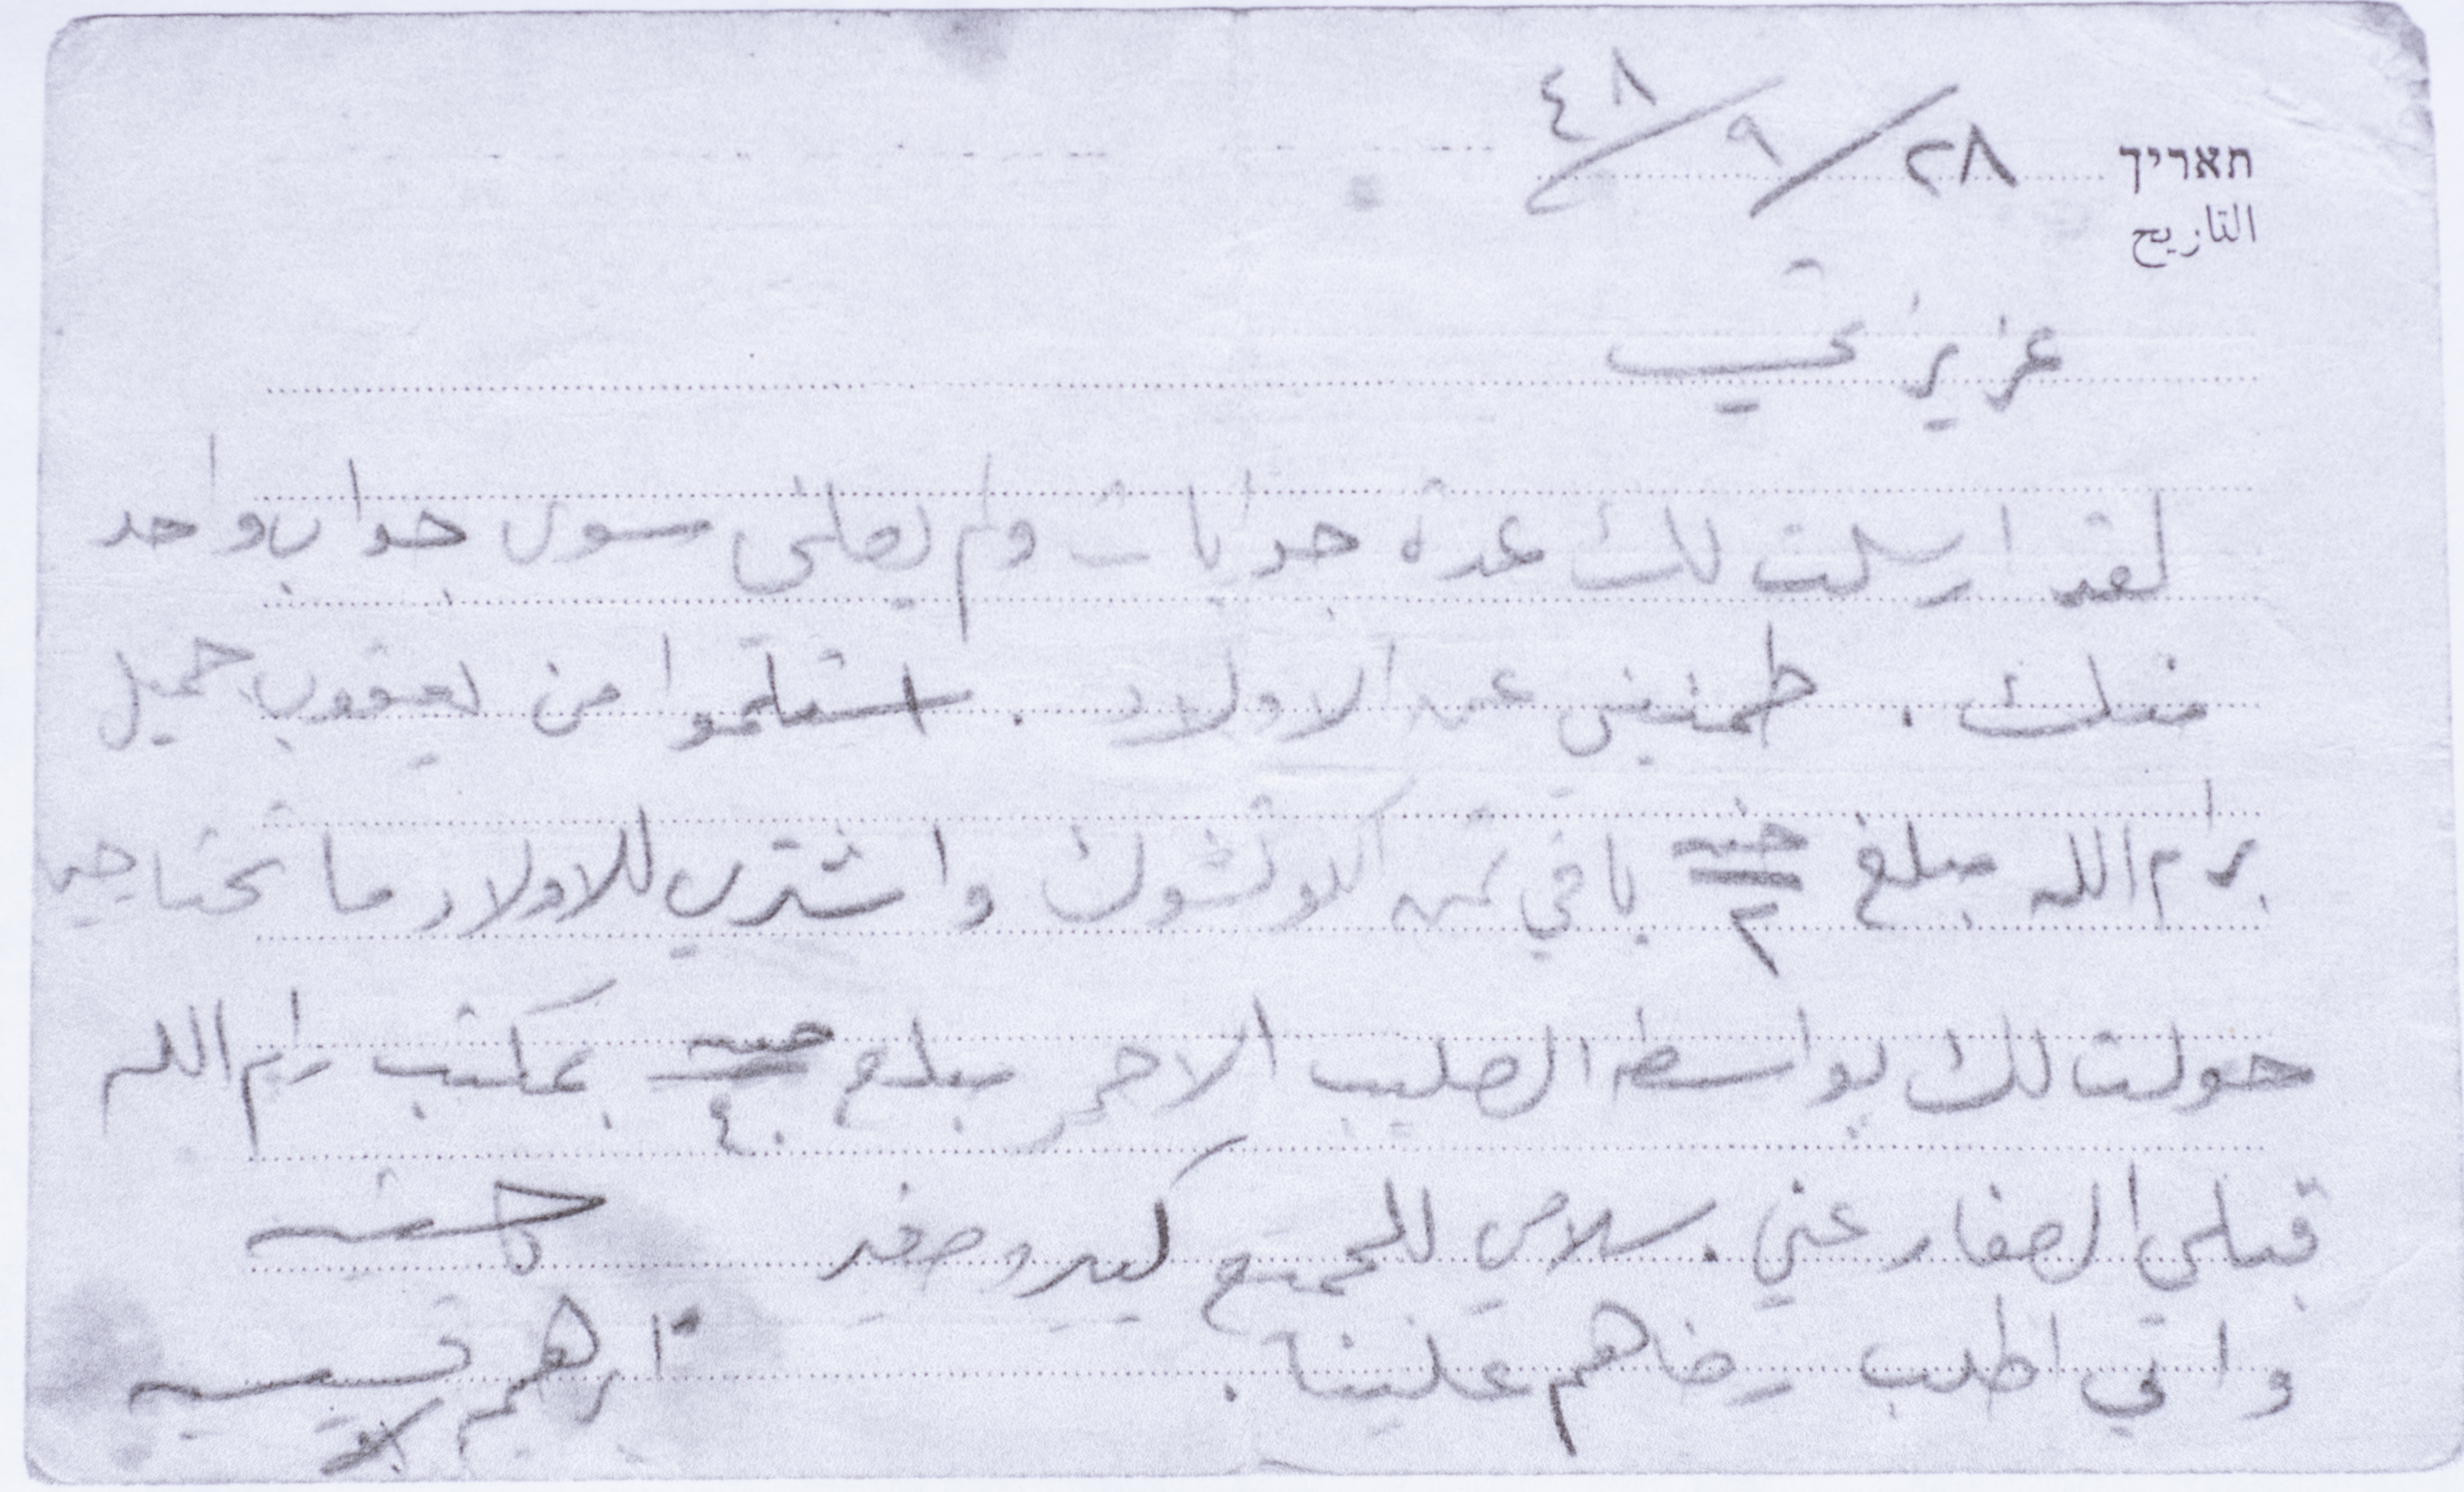 תאריך ٢٨/٩/٤٨
التاريخ
عزيزتي
لقد ارسلت لك عدة جوابات ولم يصلني سوى جواب واحد
منك . طمنيني عن الاولاد . استلموا من يعقوب جميل
برام الله مبلغ جنيه ٢ باقي ثمن الكوتشوك واشتري للاولاد ما تحتاجيه
حولت لك بواسطة الصليب الاحمر مبلغ جنيه ٤٠ بمكتب رام الله
قبلي الصغار عني . سلامي للجميع كبير وصغير
واني اطلب رضاهم علينا .
ابرهيم